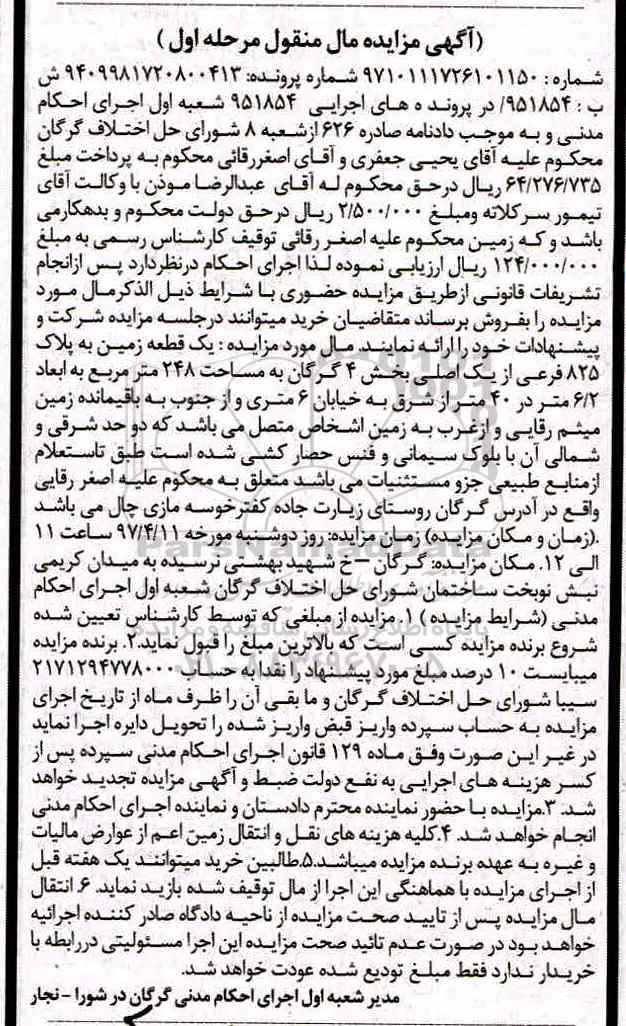 (آگهی مزایده مال منقول مرحله اول)
شماره: ۹۷۱۰۱۱۱۷۲۶۱۰۱۱۵۰ شماره پرونده: ۹۴۰۹۹۸۱۷۲۰۸۰۰۴۱۳ ش
ب: ۹۵۱۸۵۴/ در پرونده های اجرایی ۹۵۱۸۵۴ شعبه اول اجرای احکام
مدنی و به موجب دادنامه صادره ۶۲۶ ازشعبه ۸ شورای حل اختلاف گرگان
محکوم علیه آقای یحیی جعفری و آقای اصغررقائی محکوم به پرداخت مبلغ
۶۴/۲۷۶/۷۳۵ ریال درحق محکوم له آقای عبدالرضا موذن با وکالت آقای
تیمور سرکلاته ومبلغ ۲/۵۰۰/۰۰۰ ریال درحق دولت محکوم و بدهکارمی
باشد و که زمین محکوم علیه اصغر رقائی توقیف کارشناس رسمی به مبلغ
۱۲۴/۰۰۰/۰۰۰ ریال ارزیابی نموده لذا اجرای احکام درنظردارد پس ازانجام
تشریفات قانونی ازطریق مزایده حضوری با شرایط ذیل الذکرمال مورد
مزایده را بفروش برساند متقاضیان خرید میتوانند درجلسه مزایده شرکت و
پیشنهادات خود را ارائه نمایند. مال مورد مزایده: یک قطعه زمین به پلاک
۸۲۵ فرعی از یک اصلی بخش ۴ گرگان به مساحت ۲۴۸ متر مربع به ابعاد
۶/۲ متر در ۴۰ متر از شرق به خیابان ۶ متری و از جنوب به باقیمانده زمین
میثم رقایی و ازغرب به زمین اشخاص متصل می باشد که دو حد شرقی و
شمالی آن با بلوک سیمانی و فنس حصار کشی شده است طبق تاستعلام
ازمنابع طبیعی جزو مستثنیات می باشد متعلق به محکوم علیه اصغر رقایی
واقع در آدرس گرگان روستای زیارت جاده کفترخوسه مازی چال می باشد
.(زمان و مکان مزایده) زمان مزایده: روز دوشنبه مورخه ۹۷/۴/۱۱ ساعت ۱۱
الی ۱۲. مکان مزایده: گرگان – خ شهید بهشتی نرسیده به میدان کریمی
نبش نوبخت ساختمان شورای حل اختلاف گرگان شعبه اول اجرای احکام
مدنی (شرایط مزایده) ۱. مزایده از مبلغی که توسط کارشناس تعیین شده
شروع برنده مزایده کسی است که بالاترین مبلغ را قبول نماید. ۲. برنده مزایده
میبایست ۱۰ درصد مبلغ مورد پیشنهاد را نقدا به حساب ۲۱۷۱۲۹۴۷۷۸۰۰۰
سیبا شورای حل اختلاف گرگان و ما بقی آن را ظرف ماه از تاریخ اجرای
مزایده به حساب سپرده واریز قبض واریز شده را تحویل دایره اجرا نماید
در غیر این صورت وفق ماده ۱۲۹ قانون اجرای احکام مدنی سپرده پس از
کسر هزینه های اجرایی به نفع دولت ضبط و آگهی مزایده تجدید خواهد
شد. ۳.مزایده با حضور نماینده محترم دادستان و نماینده اجرای احکام مدنی
انجام خواهد شد. ۴.کلیه هزینه های نقل و انتقال زمین اعم از عوارض مالیات
و غیره به عهده برنده مزایده میباشد.۵.طالبین خرید میتوانند یک هفته قبل
از اجرای مزایده با هماهنگی این اجرا از مال توقیف شده بازید نماید. ۶. انتقال
مال مزایده پس از تایید صحت مزایده از ناحیه دادگاه صادر کننده اجرائیه
خواهد بود در صورت عدم تائید صحت مزایده این اجرا مسئولیتی دررابطه با
خریدار ندارد فقط مبلغ تودیع شده عودت خواهد شد.
مدیر شعبه اول اجرای احکام مدنی گرگان در شورا - نجار
ParsNamadData